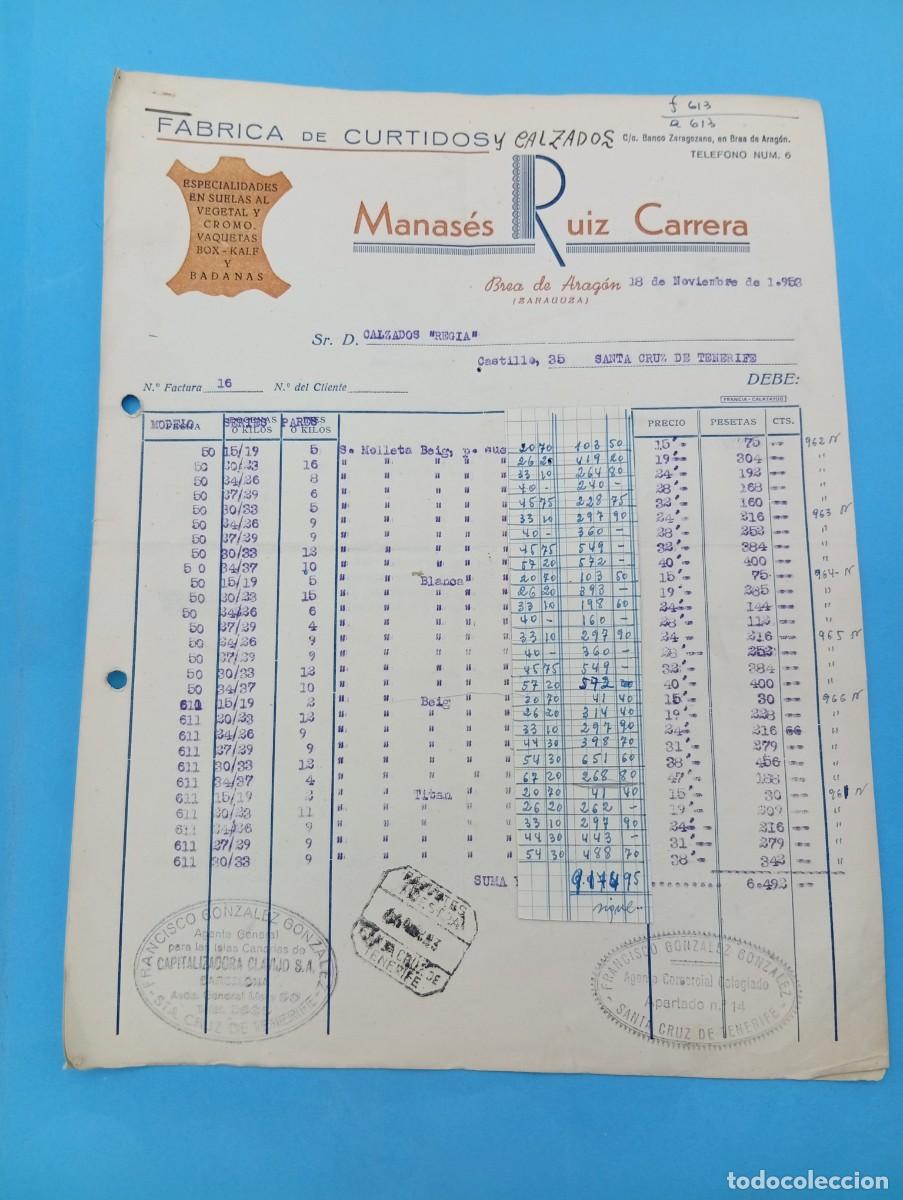 f 613
a 613
FABRICA DE CURTIDOS y CALZADOS
C/c. Banco Zaragozano, en Brea de Aragón.
TELEFONO NUM. 6
ESPECIALIDADES
EN SUELAS AL
VEGETAL Y
CROMO.
VAQUETAS
BOX-KALF
Y
BADANAS
Manasés Ruiz Carrera
Brea de Aragón 18 de Noviembre de 1.953
(ZARAGOZA)
Sr. D. CALZADOS "REGIA"
Castillo, 35 SANTA CRUZ DE TENERIFE
N.º Factura 16 N.º del Cliente
DEBE:
FRANCIA-CALATAYUD
MODELO SERIES PARES PRECIO PESETAS CTS.
O KILOS O KILOS
50 15/19 5 S. Molleta Beig, p. sue 20 70 103 50 15'- 75 -- 962 N
50 30/33 16 " " " " " 26 20 419 20 19'- 304 -- "
50 34/36 8 " " " " " 33 10 264 80 24'- 192 -- "
50 37/39 6 " " " " " 40 - 240 - 28'- 168 -- "
50 30/33 5 " " " " " 45 75 228 75 32'- 160 -- "
50 34/36 9 " " " " " 33 10 297 90 24'- 216 -- 963 N
50 37/39 9 " " " " " 40 - 360 - 28'- 252 -- "
50 30/33 12 " " " " " 45 75 549 - 32'- 384 -- "
50 34/37 10 " " " " " 57 20 572 - 40'- 400 -- "
50 15/19 5 " " Blanca" " " 20 70 103 50 15'- 75 -- 964 N
50 30/33 15 " " " " " 26 20 393 - 19'- 285 -- "
50 34/36 6 " " " " " 33 10 198 60 24'- 144 -- "
50 37/39 4 " " " " " 40 - 160 - 28'- 112 -- "
50 34/36 9 " " " " " 33 10 297 90 24'- 216 -- 965 N
50 37/39 9 " " " " " 40 - 360 - 28'- 252 -- "
50 30/33 12 " " " " " 45 75 549 - 32'- 384 -- "
50 34/37 10 " " " " " 57 20 572 40'- 400 -- "
611 15/19 2 " " Beig " " 20 70 41 40 15'- 30 -- 966 N
611 30/33 12 " " " " " 26 20 314 40 19'- 228 -- "
611 34/36 9 " " " " " 33 10 297 90 24'- 216 "
611 37/39 9 " " " " " 44 30 398 70 31'- 279 -- "
611 30/33 12 " " " " " 54 30 651 60 38'- 456 -- "
611 34/37 4 " " " " " 67 20 268 80 47'- 188 -- "
611 15/19 2 " " Titan " " 20 70 41 40 15'- 30 -- 961 N
611 30/33 11 " " " " " 26 20 262 - 19'- 209 -- "
611 34/36 9 " " " " " 33 10 297 90 24'- 216 -- "
611 37/39 9 " " " " " 44 30 443 - 31'- 279 -- "
611 30/33 9 " " " " " 54 30 488 70 38'- 342 -- "
SUMA Y 9.174 95 ........ 6.492 --
sigue
FRANCISCO GONZALEZ GONZALEZ
Agente General
para las Islas Canarias de
CAPITALIZADORA CLAVIJO S.A.
BARCELONA
STA. CRUZ DE TENERIFE
SANTA CRUZ DE
TENERIFE
FRANCISCO GONZALEZ GONZALEZ
Agente Comercial Colegiado
Apartado n.º 14
SANTA CRUZ DE TENERIFE
todocoleccion